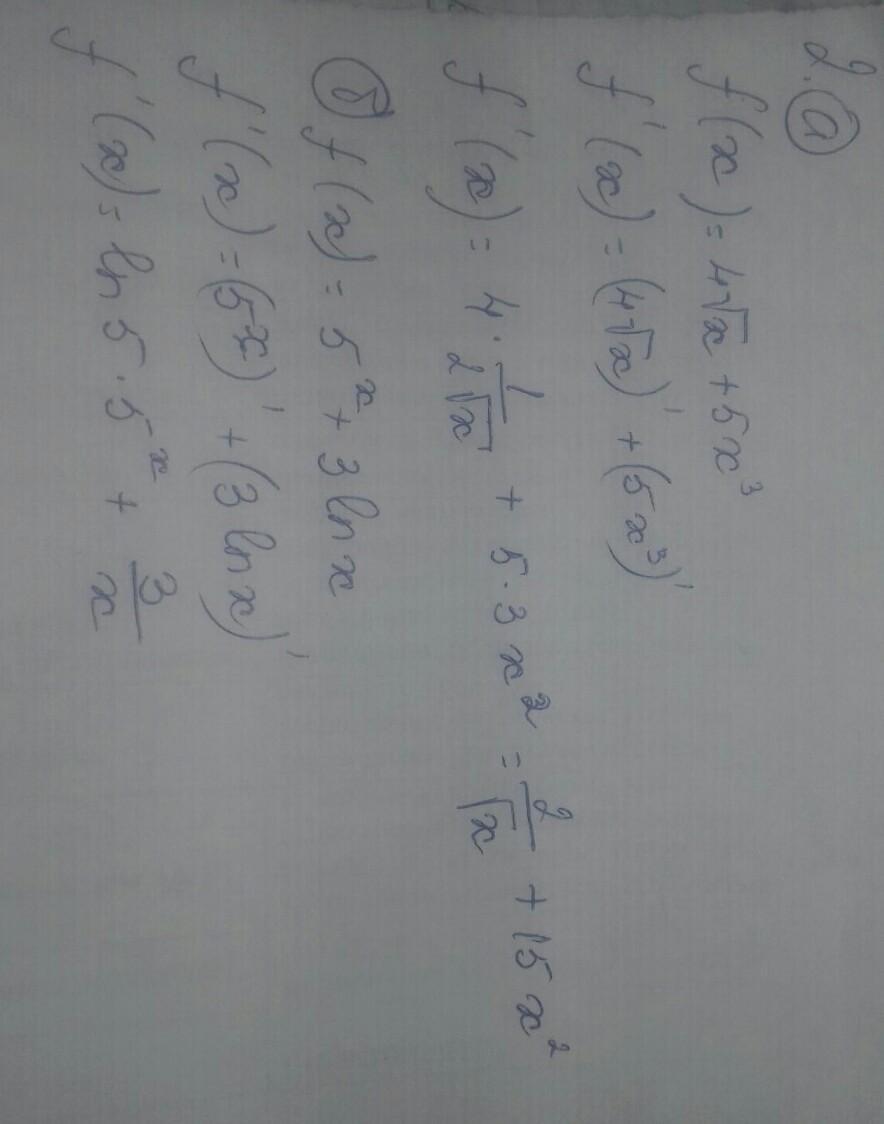 2. а
f(x) = 4√x + 5x³
f'(x) = (4√x)' + (5x³)'
f'(x) = 4 · 1/(2√x) + 5 · 3x² = 2/√x + 15x²
б f(x) = 5ˣ + 3 ln x
f'(x) = (5ˣ)' + (3 ln x)'
f'(x) = ln 5 · 5ˣ + 3/x